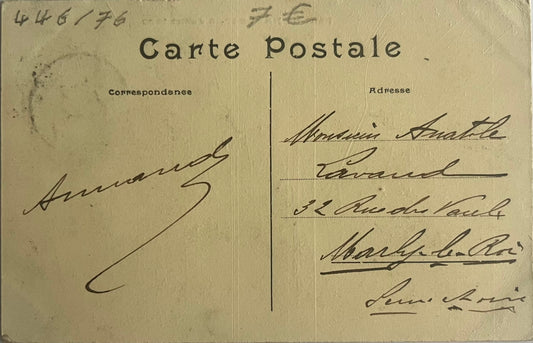 446/76 7 €
Carte Postale
Correspondance
Adresse
Armand
Monsieur Anatole
Lavaud
32 Rue des Vaul
Marly-le-Roi
Seine